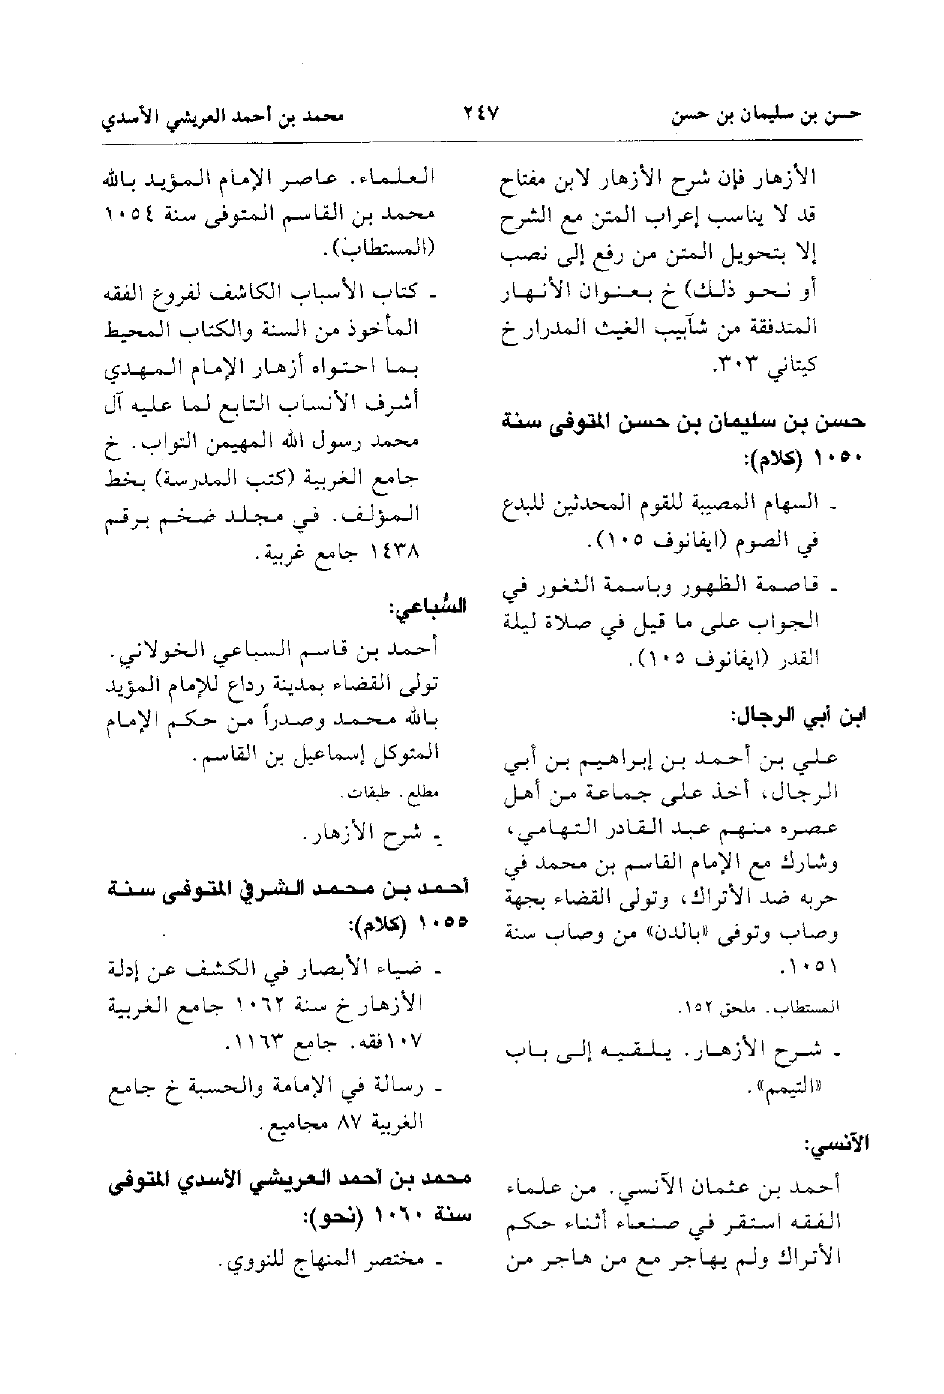 حسن بن سليمان بن حسن ٢٤٧ محمد بن أحمد العريشي الأسدي
الأزهار فإن شرح الأزهار لابن مفتاح
قد لا يناسب إعراب المتن مع الشرح
إلا بتحويل المتن من رفع إلى نصب
أو نحو ذلك) خ بعنوان الأنهار
المتدفقة من شآبيب الغيث المدرار خ
كيتاني ٣٠٣.
حسن بن سليمان بن حسن المتوفى سنة
١٠٥٠ (كلام):
ـ السهام المصيبة للقوم المحدثين للبدع
في الصوم (ايفانوف ١٠٥).
ـ قاصمة الظهور وباسمة الثغور في
الجواب على ما قيل في صلاة ليلة
القدر (ايفانوف ١٠٥).
ابن أبي الرجال:
علي بن أحمد بن إبراهيم بن أبي
الرجال، أخذ على جماعة من أهل
عصره منهم عبد القادر التهامي،
وشارك مع الإمام القاسم بن محمد في
حربه ضد الأتراك، وتولى القضاء بجهة
وصاب وتوفى «بالدن» من وصاب سنة
١٠٥١.
المستطاب. ملحق ١٥٢.
ـ شرح الأزهار. يلقيه إلى باب
«التيمم».
الآنسي:
أحمد بن عثمان الآنسي. من علماء
الفقه استقر في صنعاء أثناء حكم
الأتراك ولم يهاجر مع من هاجر من
العلماء. عاصر الإمام المؤيد بالله
محمد بن القاسم المتوفى سنة ١٠٥٤
(المستطاب).
ـ كتاب الأسباب الكاشف لفروع الفقه
المأخوذ من السنة والكتاب المحيط
بما احتواه أزهار الإمام المهدي
أشرف الأنساب التابع لما عليه آل
محمد رسول الله المهيمن التواب. خ
جامع الغربية (كتب المدرسة) بخط
المؤلف. في مجلد ضخم برقم
١٤٣٨ جامع غربية.
السُّباعي:
أحمد بن قاسم السباعي الخولاني.
تولى القضاء بمدينة رداع للإمام المؤيد
بالله محمد وصدراً من حكم الإمام
المتوكل إسماعيل بن القاسم.
مطلع. طبقات.
ـ شرح الأزهار.
أحمد بن محمد الشرفي المتوفى سنة
١٠٥٥ (كلام):
ـ ضياء الأبصار في الكشف عن إدلة
الأزهار خ سنة ١٠٦٢ جامع الغربية
١٠٧ فقه. جامع ١١٦٣.
ـ رسالة في الإمامة والحسبة خ جامع
الغربية ٨٧ مجاميع.
محمد بن أحمد العريشي الأسدي المتوفى
سنة ١٠٦٠ (نحو):
ـ مختصر المنهاج للنووي.